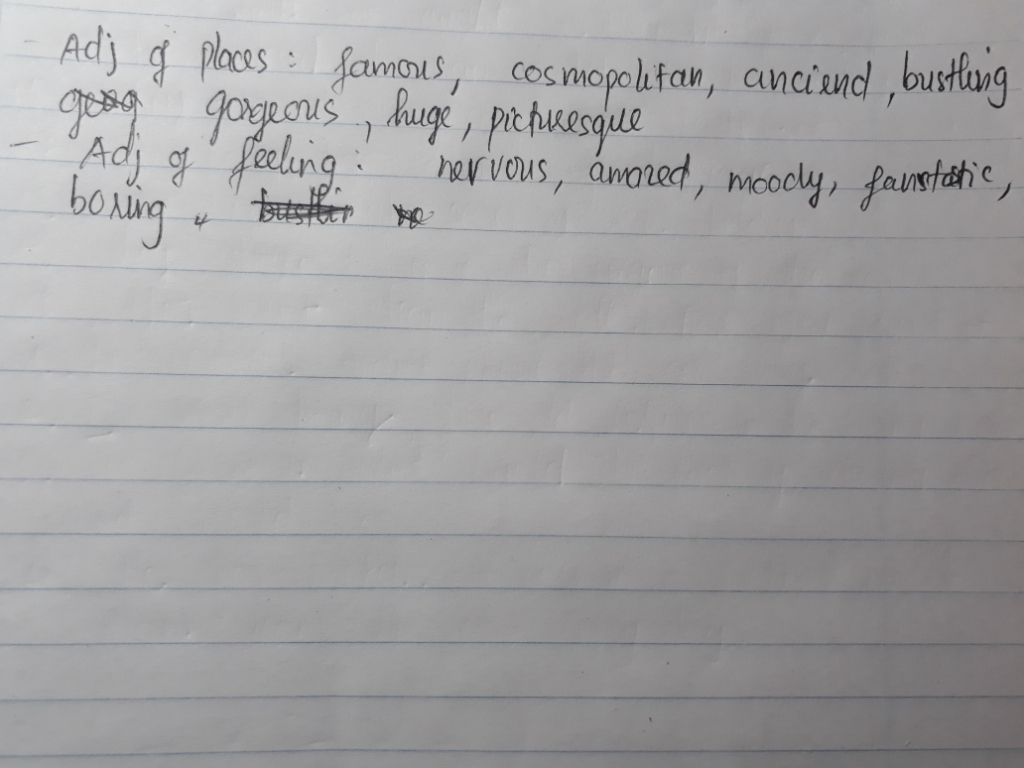 - Adj of places : famous, cosmopolitan, anciend, bustling
gorgeous, huge, picturesque
- Adj of feeling : nervous, amazed, moody, fanstatic,
boring